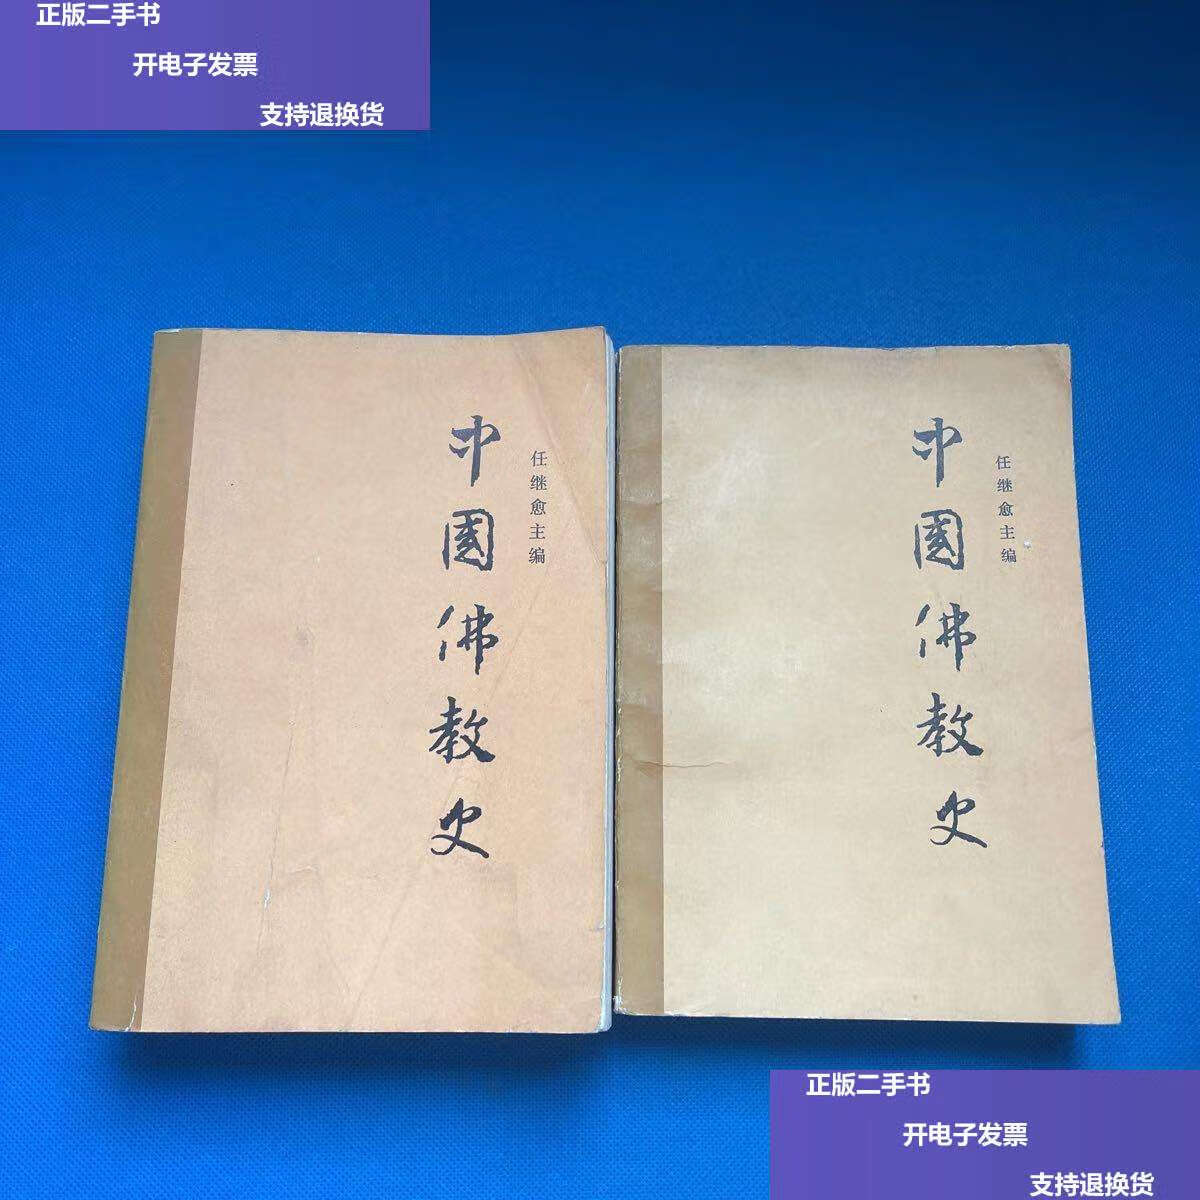 正版二手书
开电子发票
支持退换货
中國佛教史
任继愈主编
中國佛教史
任继愈主编
正版二手书
开电子发票
支持退换货